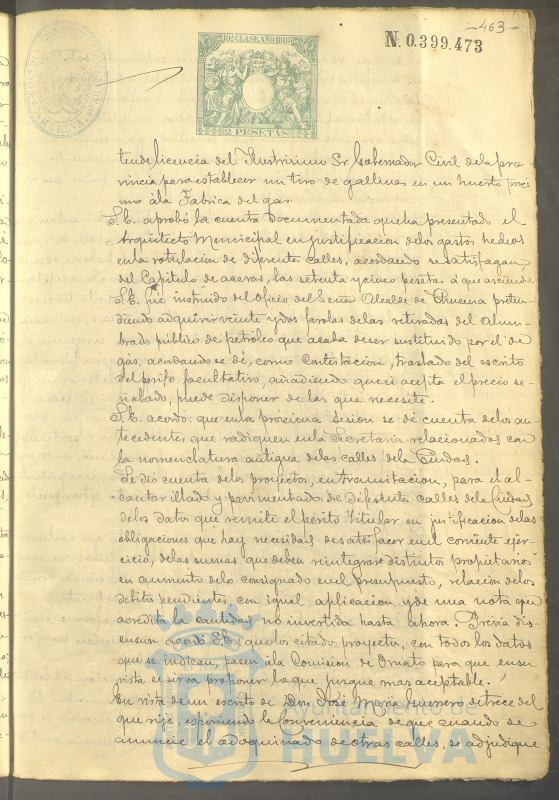 -463-
N. 0.399.473
10ª CLASE. AÑO 1885
2 PESETAS
HUELVA
tende licencia del Ilustrisimo Sr. Gobernador Civil de la pro
vincia para establecer un tiro de gallina en un huerto proxi
mo á la Fabrica del gas.
S.E. aprobó la cuenta documentada que ha presentado el
Arquitecto Municipal en justificacion de los gastos hechos
en la rotulacion de diferentes calles, acordando se satisfagan
del Capitulo de aceras, las setenta y cinco pesetas á que asciende
S.E. fue instruido del oficio del Señor Alcalde de Chucena preten
diendo adquirir veinte y dos farolas de las retiradas del alum
brado público de petróleo que acaba de ser sustituido por el de
gas, acordando se dé, como contestacion, traslado del escrito
del perito facultativo, añadiendo que si acepta el precio se
ñalado, puede disponer de las que necesite.
S.E. acordó: que en la proxima sesion se dé cuenta de los an
tecedentes que radiquen en la Secretaria relacionados con
la nomenclatura antigua de las calles de la Ciudad.
Se dió cuenta de los proyectos, en tramitacion, para el al
cantarillado y pavimentado de diferentes calles de la Ciudad,
de los datos que remite el perito titular en justificacion de las
obligaciones que hay necesidad de satisfacer en el corriente ejer
cicio, de las sumas que deben reintegrar distintos propietarios
en aumento de lo consignado en el presupuesto, relacion de los
debitos pendientes con igual aplicacion y de una nota que
acredita la cantidad no invertida hasta ahora. Previa dis
cusion acordó S.E.: que los citados proyectos, con todos los datos
que se indican, pasen á la Comision de Ornato para que en su
vista se sirva proponer lo que juzgue mas aceptable.
En vista de un escrito de Don José Maria Guerrero de trece del
que rije, exponiendo la conveniencia de que cuando se
anuncie el adoquinado de otras calles, se adjudique
Ayuntamiento de
HUELVA